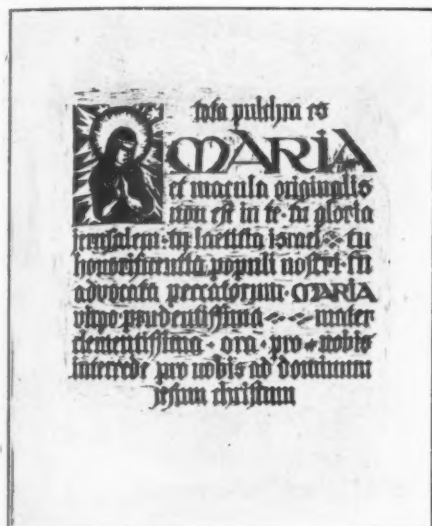 tota pulchra es
MARIA
et macula originalis
non est in te · tu gloria
jerusalem · tu laetitia israel · tu
honorificentia populi nostri · tu
advocata peccatorum · MARIA
virgo prudentissima mater
clementissima · ora · pro · nobis
intercede pro nobis ad dominum
jesum christum